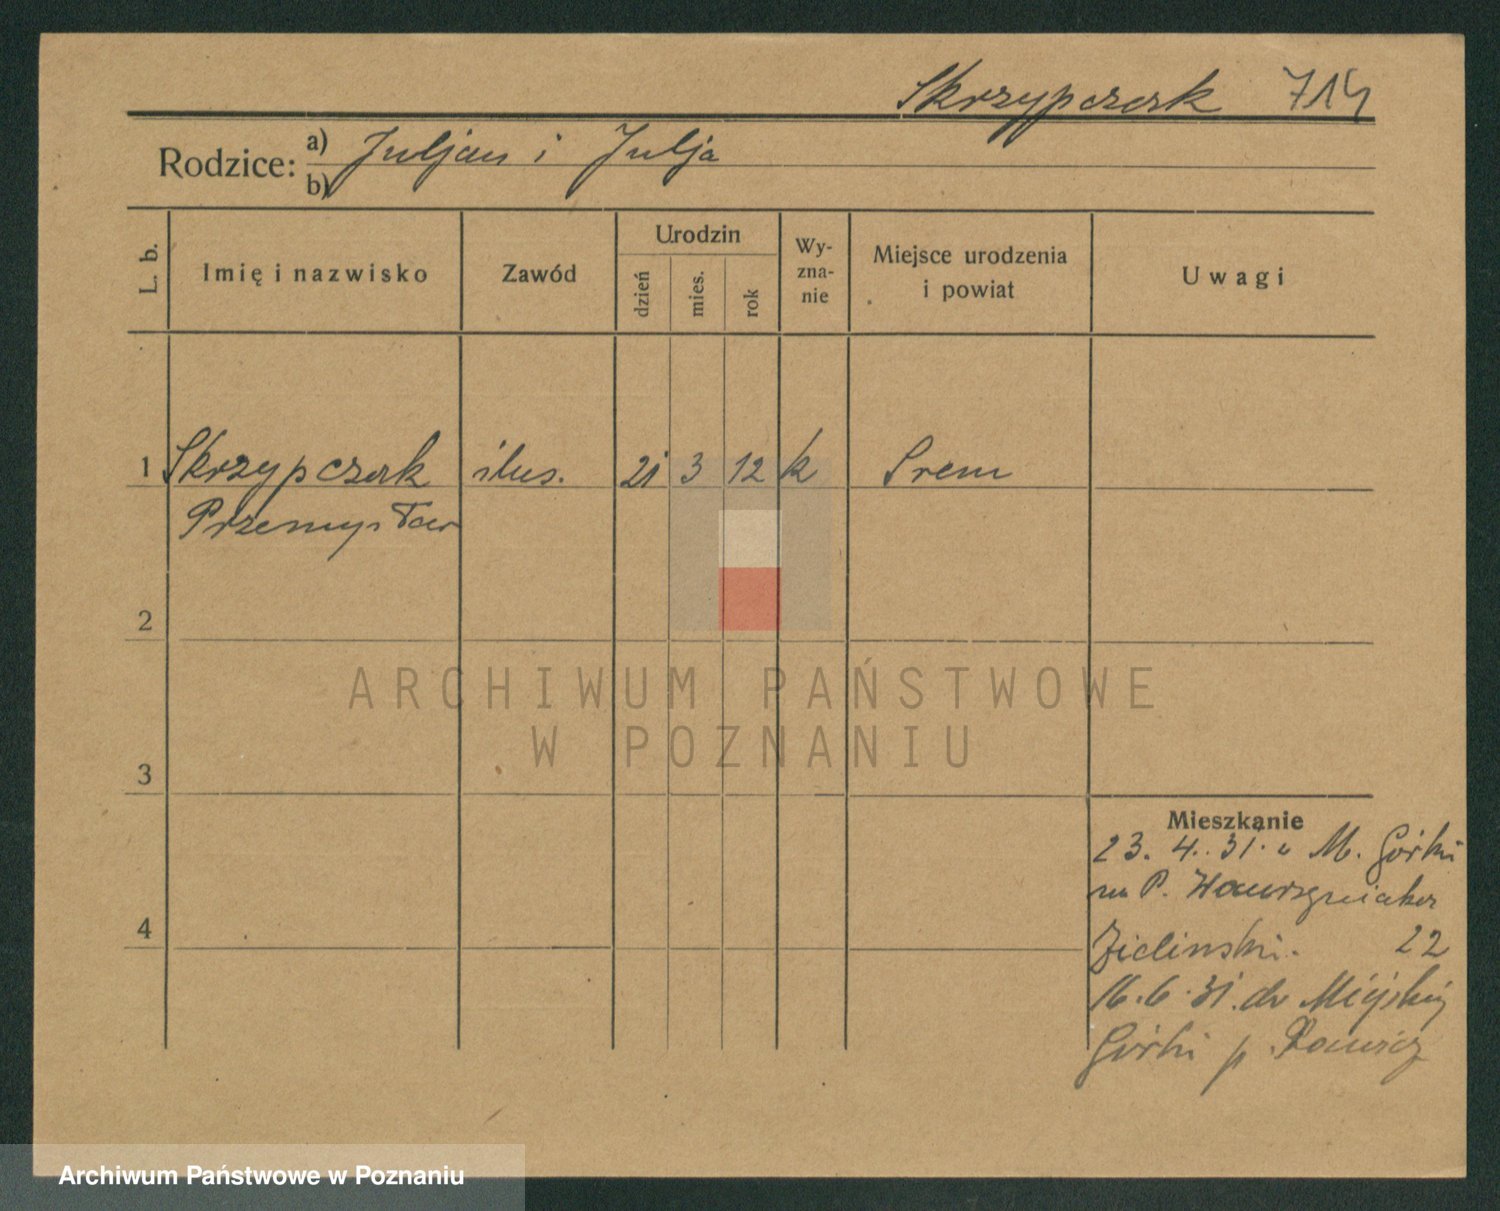 Skrzypczak 714
Rodzice: a) Juljan i Julja
b)
L. b.
Imię i nazwisko
Zawód
Urodzin
dzień
mies.
rok
Wy-
zna-
nie
Miejsce urodzenia
i powiat
Uwagi
1 Skrzypczak ślus. 21 3 12 k Srem
Przemysław
2
ARCHIWUM PAŃSTWOWE
W POZNANIU
3
Mieszkanie
23. 4. 31. M. Górki
P. Wawrzyniaka
4
Zielinski. 22
16. 6. 31. do Miejskiej
Górki p. Rawicz
Archiwum Państwowe w Poznaniu